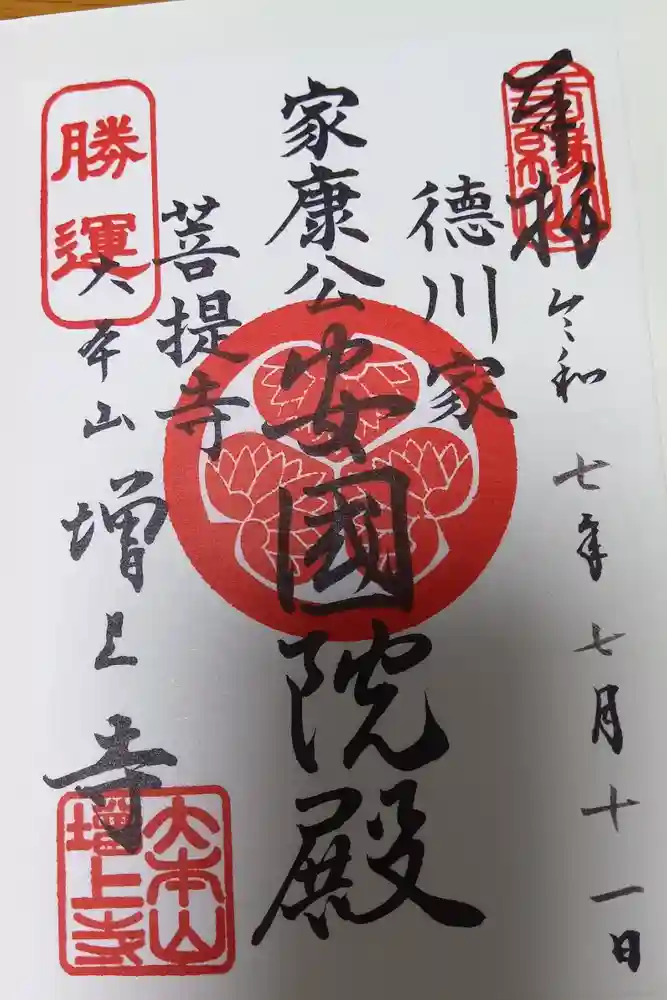 奉拝
令和七年七月十一日
徳川家
家康公安國院殿
菩提寺
勝運
大本山増上寺
大本山
増上寺